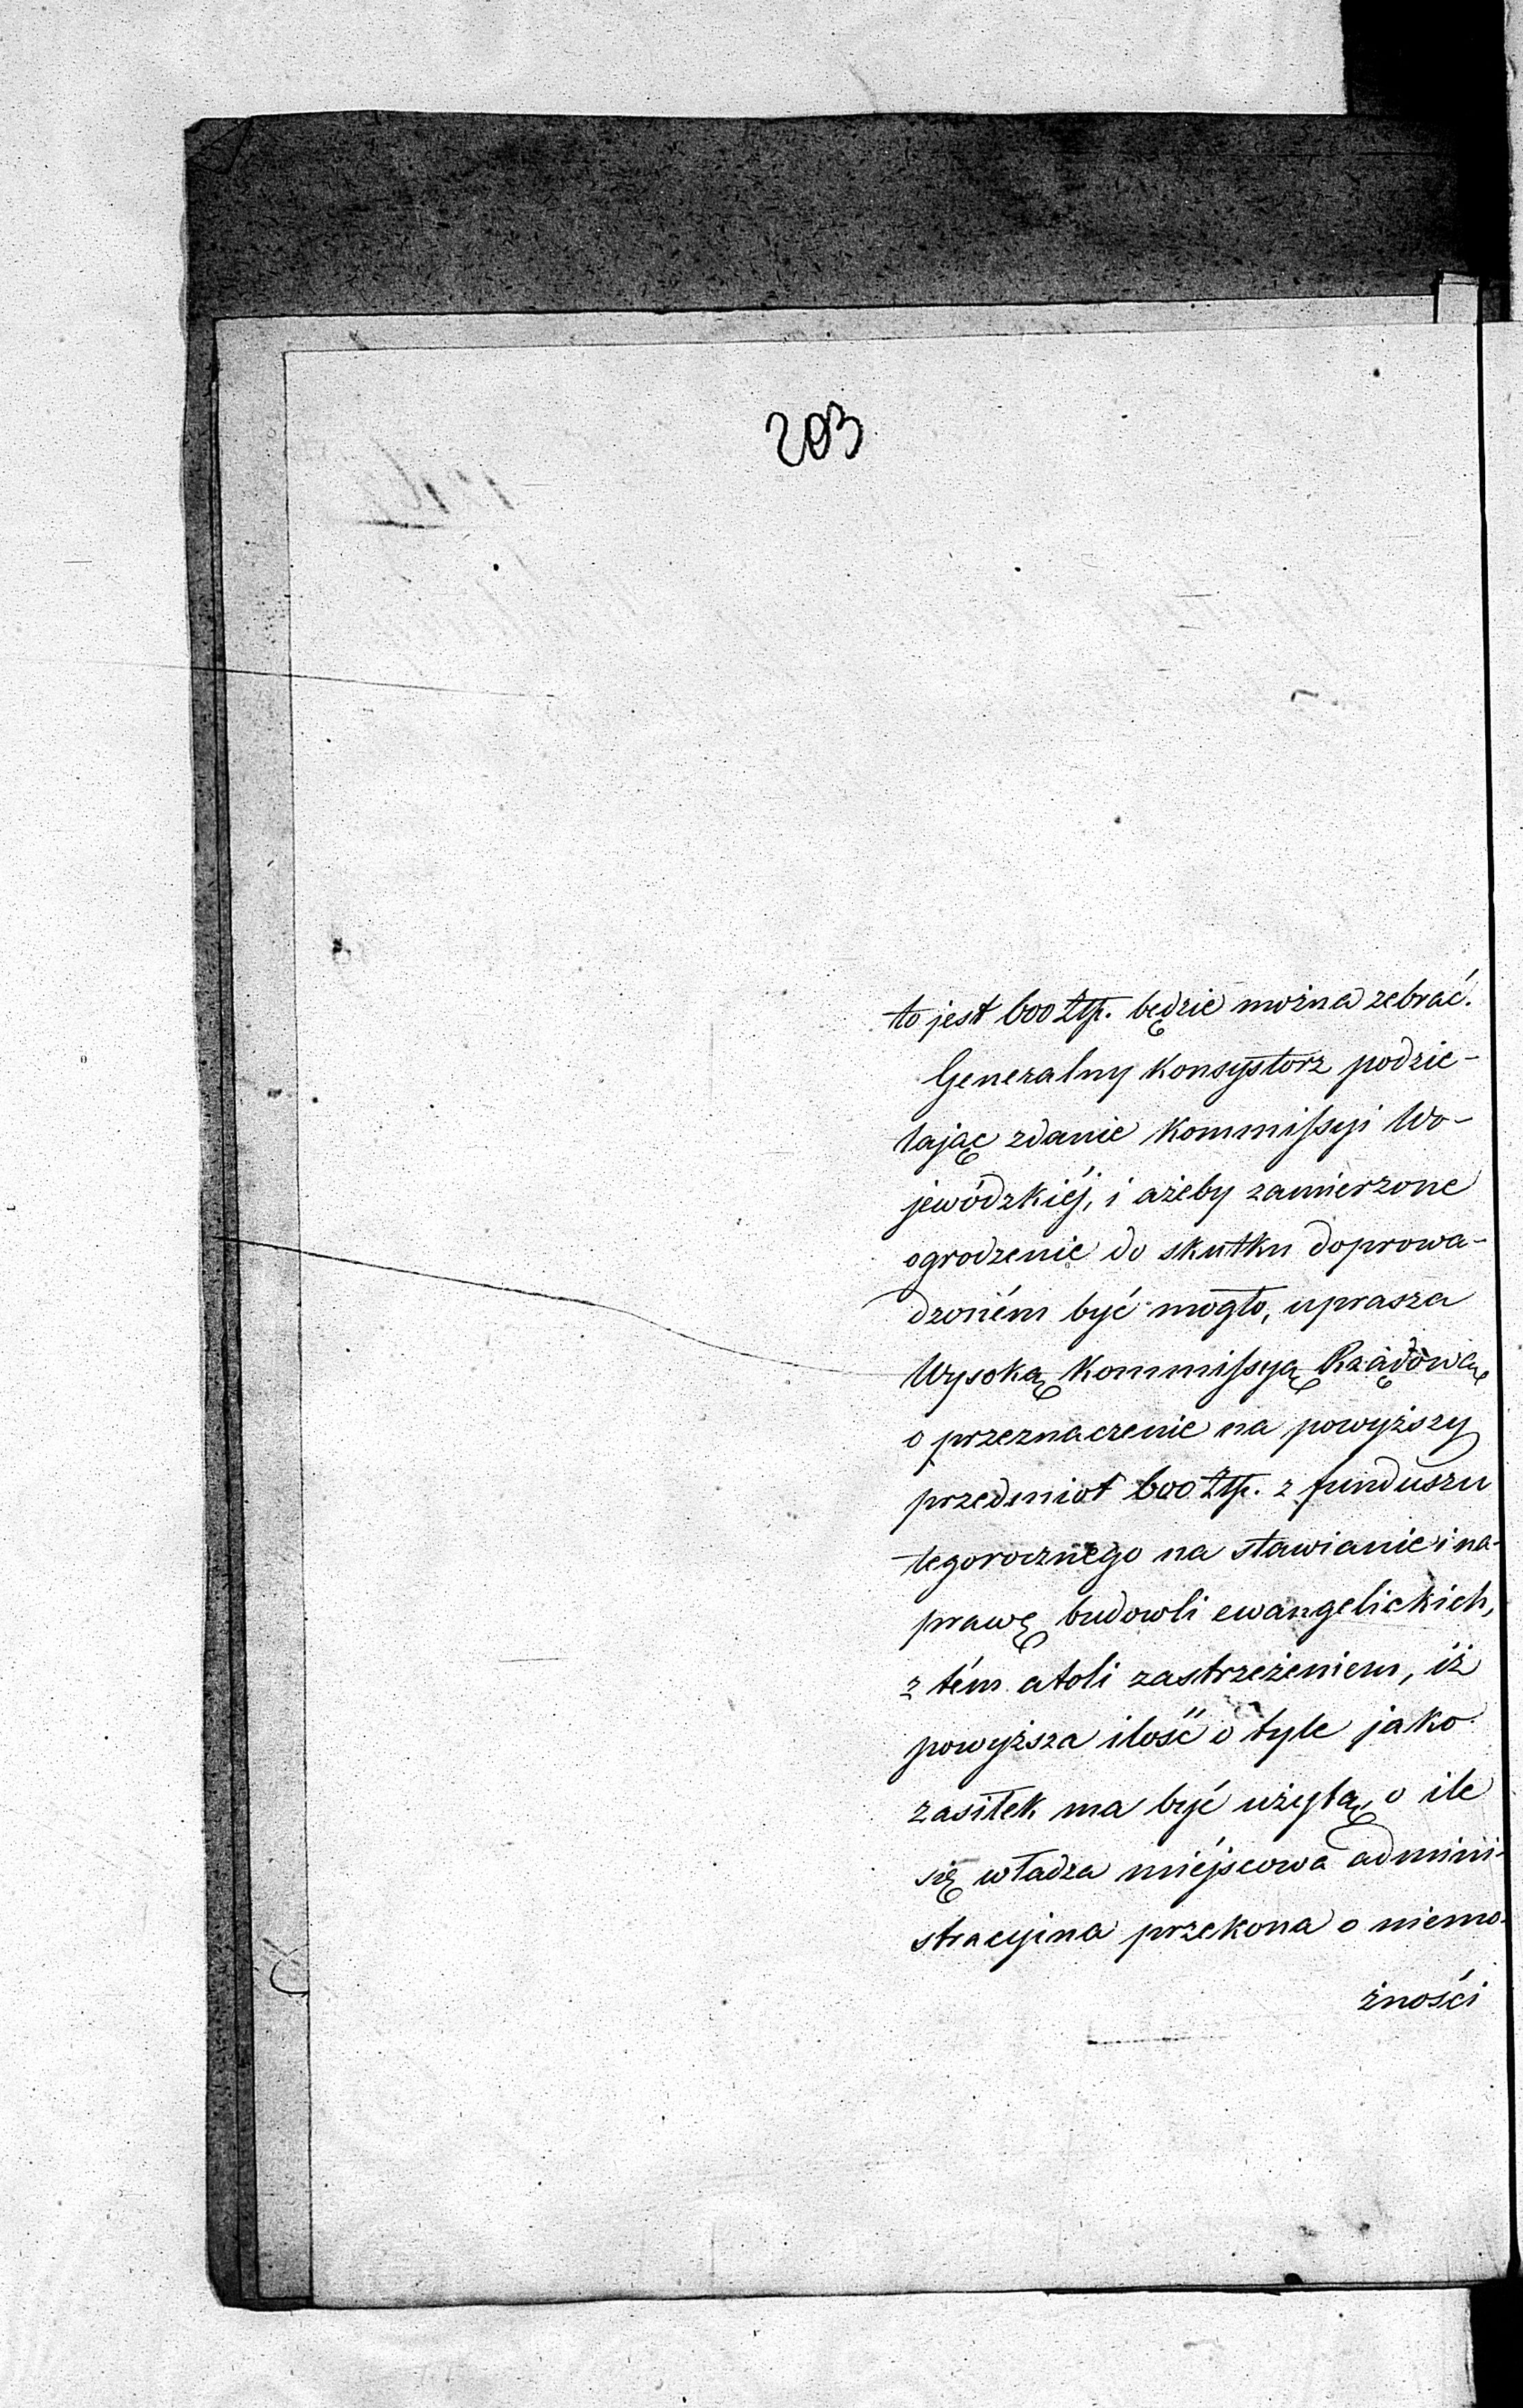 203
to jest 600 Złp. będzie można zebrać.
Generalny Konsystorz podzie-
lając zdanie Kommissyi Wo-
jewódzkiéj, i ażeby zamierzone
ogrodzenie do skutku doprowa-
dzoném być mogło, uprasza
Wysoką Kommissyą Rządową
o przeznaczenie na powyższy
przedmiot 600 Złp. z funduszu
tegorocznego na stawianie i na-
prawę budowli ewangelickich,
z tém atoli zastrzeżeniem, iż
powyższa ilość o tyle jako
zasiłek ma być użytą, o ile
się władza miéjscowa admini-
stracyjna przekona o niemo-
żności